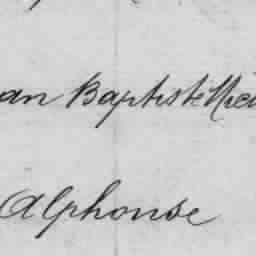 an Baptiste
Alphonse